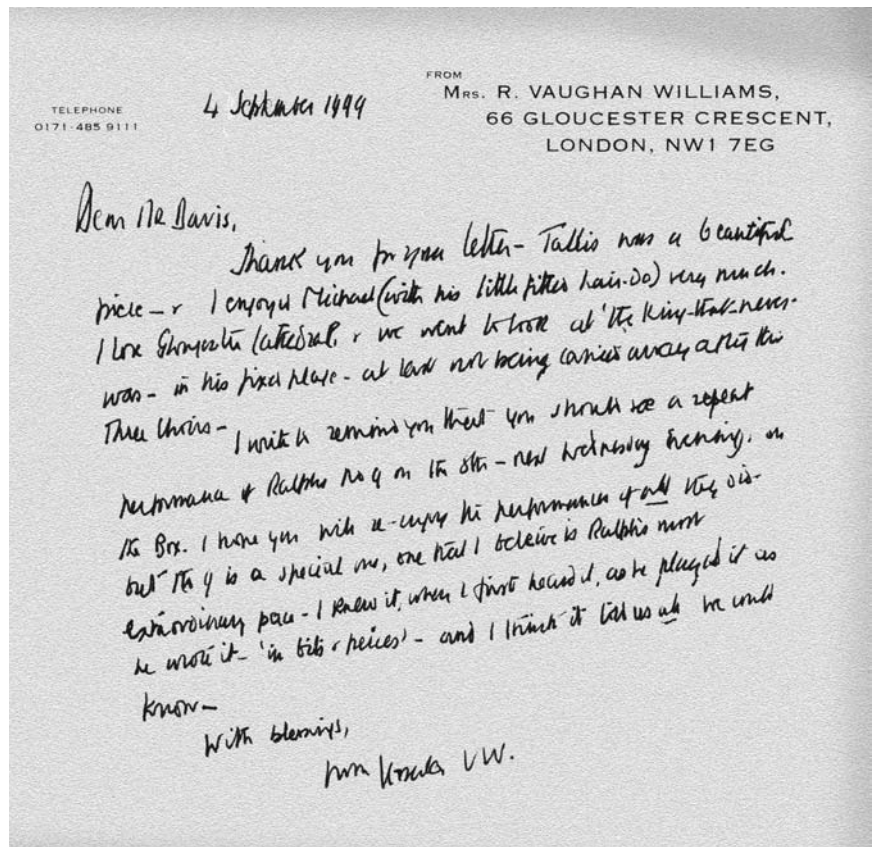 FROM
MRS. R. VAUGHAN WILLIAMS,
66 GLOUCESTER CRESCENT,
LONDON, NW1 7EG
TELEPHONE
0171-485 9111
4 September 1999
Dear Mr Davis,
Thank you for your letter - Tallis was a beautiful
piece - & I enjoyed Michael (with his little hair-do) very much.
I love Gloucester Cathedral, & we went to look at 'the King-that-never-
was - in his fixed place - at least not being carried away after the
Three Choirs -
I write to remind you that you should see a repeat
performance of Ralph's No 9 on the 8th - next Wednesday evening, on
the Box. I hope you will re-enjoy the performance of all they did -
but the 9 is a special one, one that I believe is Ralph's most
extraordinary piece - I knew it, when I first heard it, as he played it as
he wrote it - 'in bits & peices' - and I think it told us all he could
know -
With blessings,
from Ursula VW.